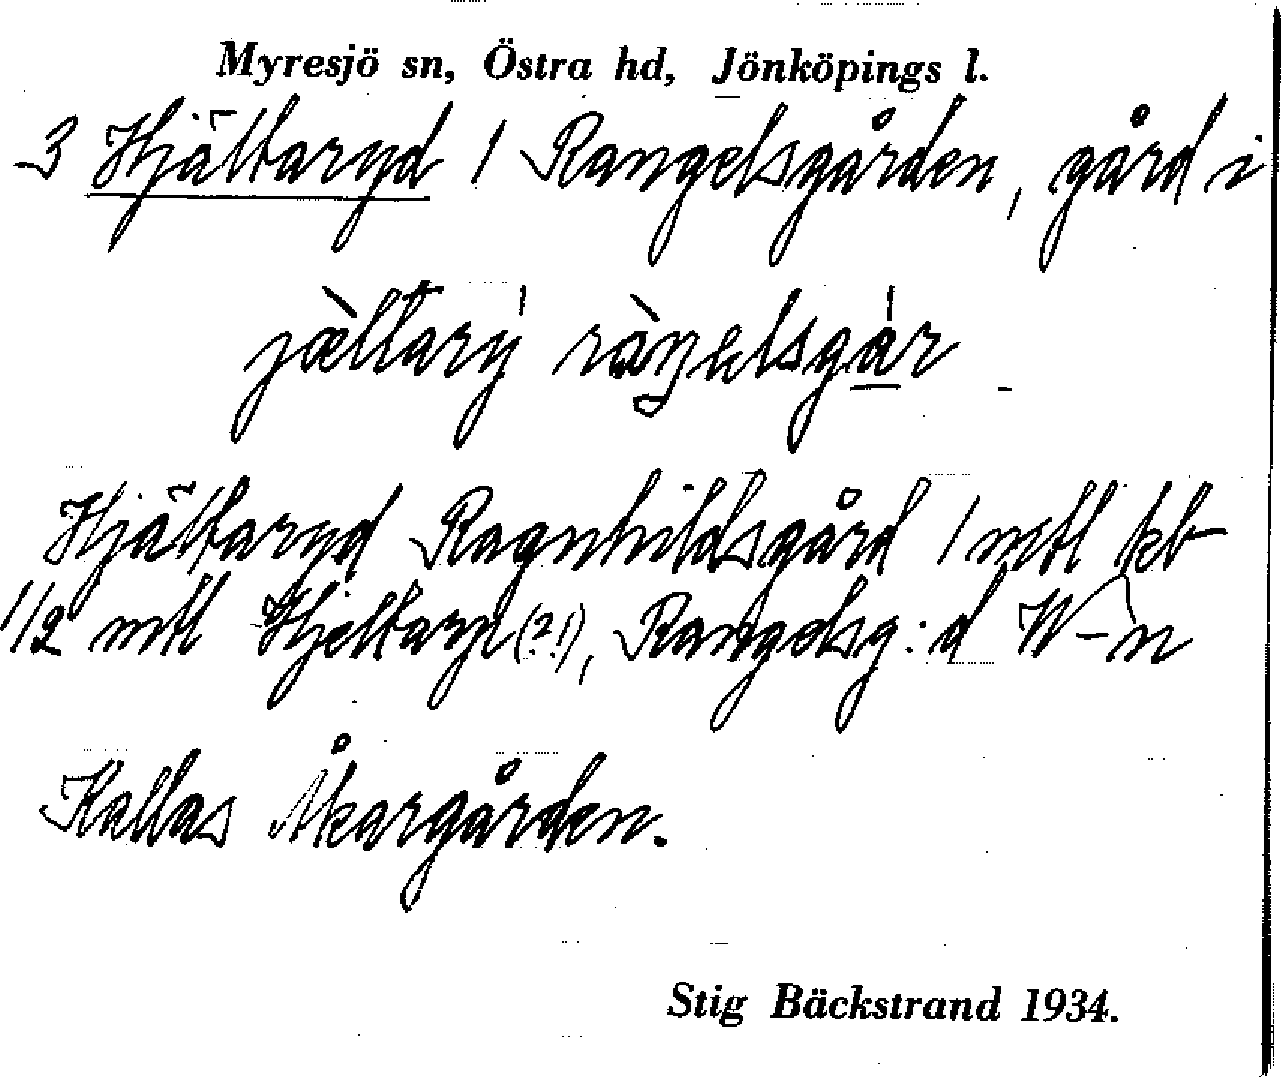 Myresjö sn, Östra hd, Jönköpings l.
3 Hjältaryd / Rangelsgården, gård i
jæ̀ltarý ràŋelsgár
Hjältaryd Ragnhildsgård 1 mtl kb
1/2 mtl Hjeltaryd (2!), Rangelsg:d W-n
Kallas Åkargården.
Stig Bäckstrand 1934.